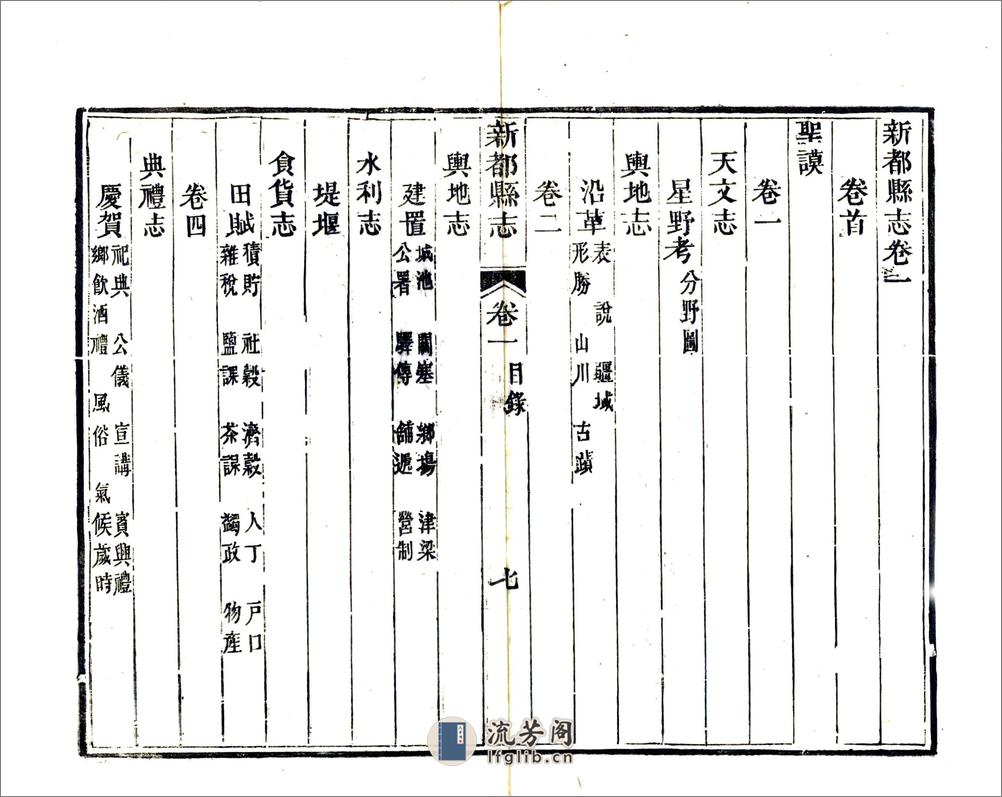 新都縣志卷一
卷首
聖謨
卷一
天文志
星野考 分野圖
輿地志
沿革 表 說 疆域
形勝 山川 古蹟
卷二
新都縣志 卷一 目錄 七
輿地志
建置 城池 關塞 鄉場 津梁
公署 驛傳 舖遞 營制
水利志
堤堰
食貨志
田賦 積貯 社穀 濟穀 人丁 戶口
雜稅 鹽課 茶課 蠲政 物產
卷四
典禮志
慶賀 祀典 公儀 宣講 賓興禮
鄉飲酒禮 風俗 氣候 歲時
流芳阁
lfglib.cn